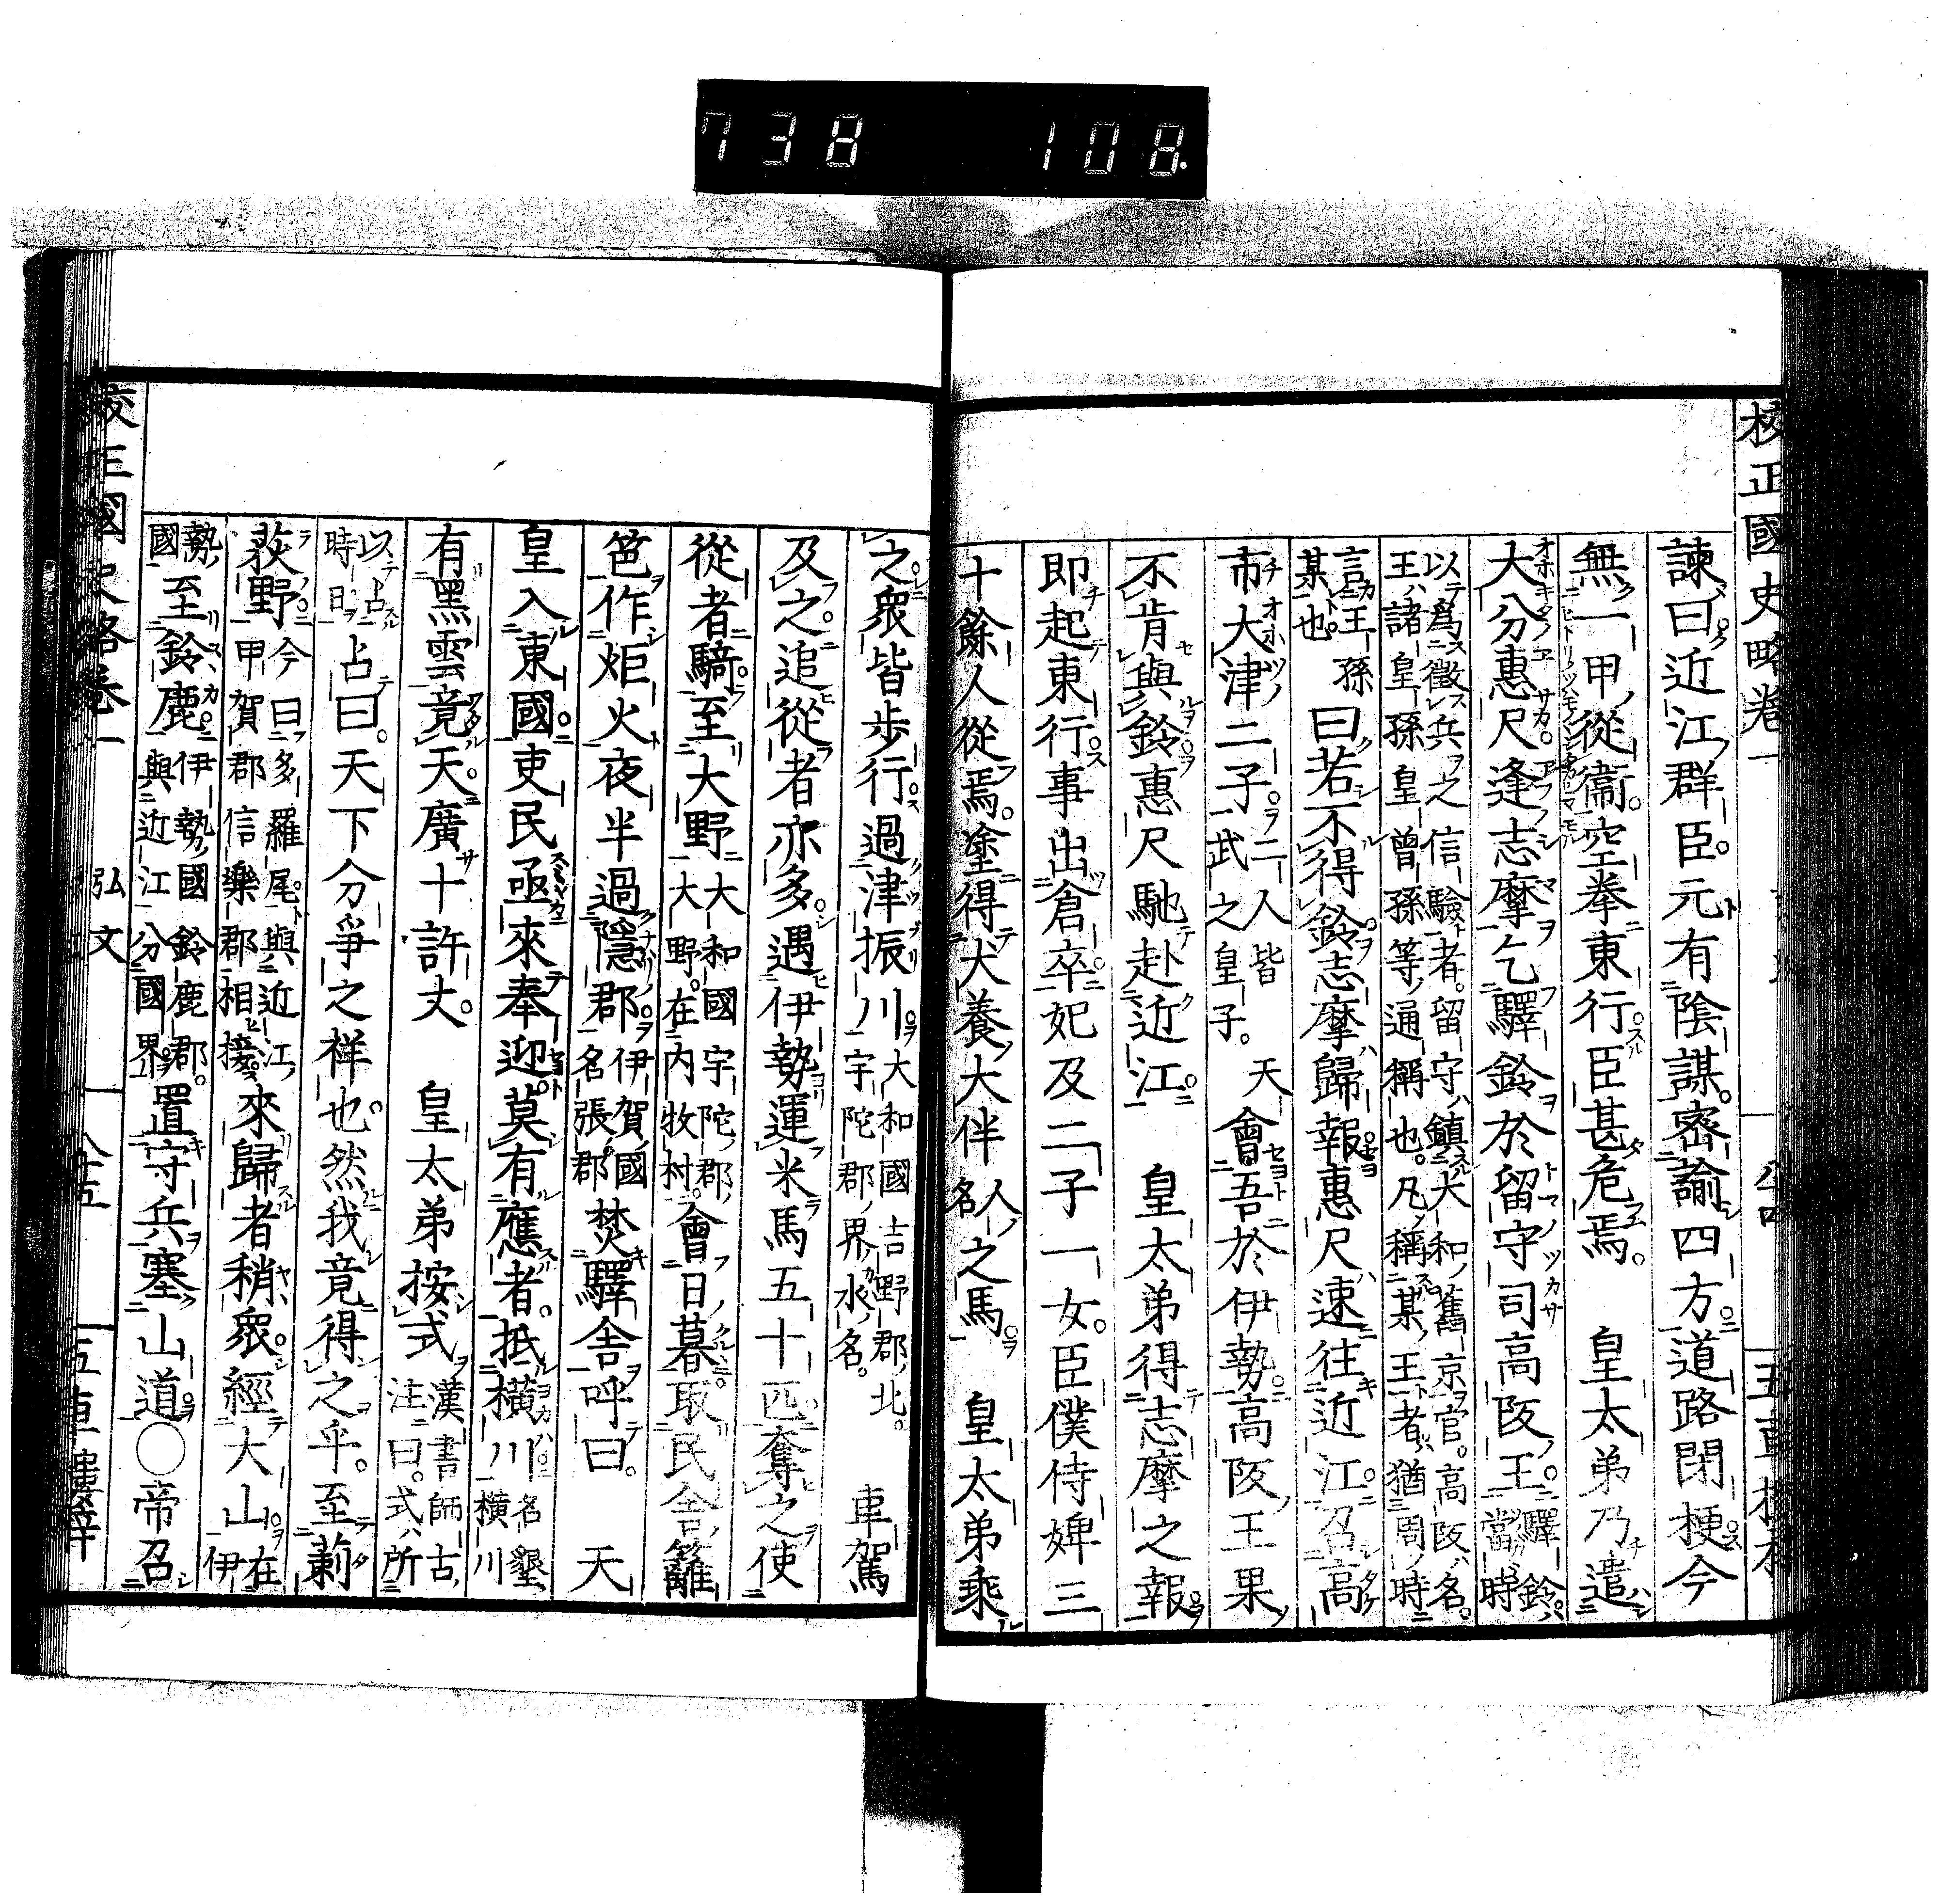 738 108
校正國史略卷一
諫曰近江群臣元有陰謀密諭四方道路閉梗今
無一甲從衞空拳東行臣甚危焉。 皇太弟乃遣
大分惠尺逢志摩乞驛鈴於留守司高阪王驛鈴當時
以爲徵兵之信驗者。留守鎮大和舊京官。高阪名。
王諸皇孫皇曾孫等通稱也。凡稱某王者猶周時
言王孫某也。曰若不得鈴志摩歸報惠尺速往近江召高
市大津二子二人皆天武之皇子。會吾於伊勢高阪王果
不肯與鈴惠尺馳赴近江。 皇太弟得志摩之報
即起東行事出倉卒妃及二子一女。臣僕侍婢三
十餘人從焉。塗得犬養大伴人名之馬 皇太弟乘
之衆皆步行過津振川大和國吉野郡北。宇陀郡界水名。 車駕
及之追從者亦多遇伊勢運米馬五十匹奪之使
從者騎至大野大和國宇陀郡大野。在內牧村。會日暮取民舍籬
笆作炬火夜半過隱郡伊賀國名張郡焚驛舍呼曰。 天
皇入東國吏民亟來奉迎莫有應者。抵橫川名墾橫川
有黑雲竟天。廣十許丈。 皇太弟按式漢書師古注曰。式所
以占時日占曰。天下分爭之祥也。然我竟得之乎。至莿
萩野今曰多羅尾與近江甲賀郡信樂郡相接來歸者稍衆。經大山在伊
勢國至鈴鹿伊勢國鈴鹿郡。與近江分國界置守兵塞山道○帝召
校正國史略卷一 弘文